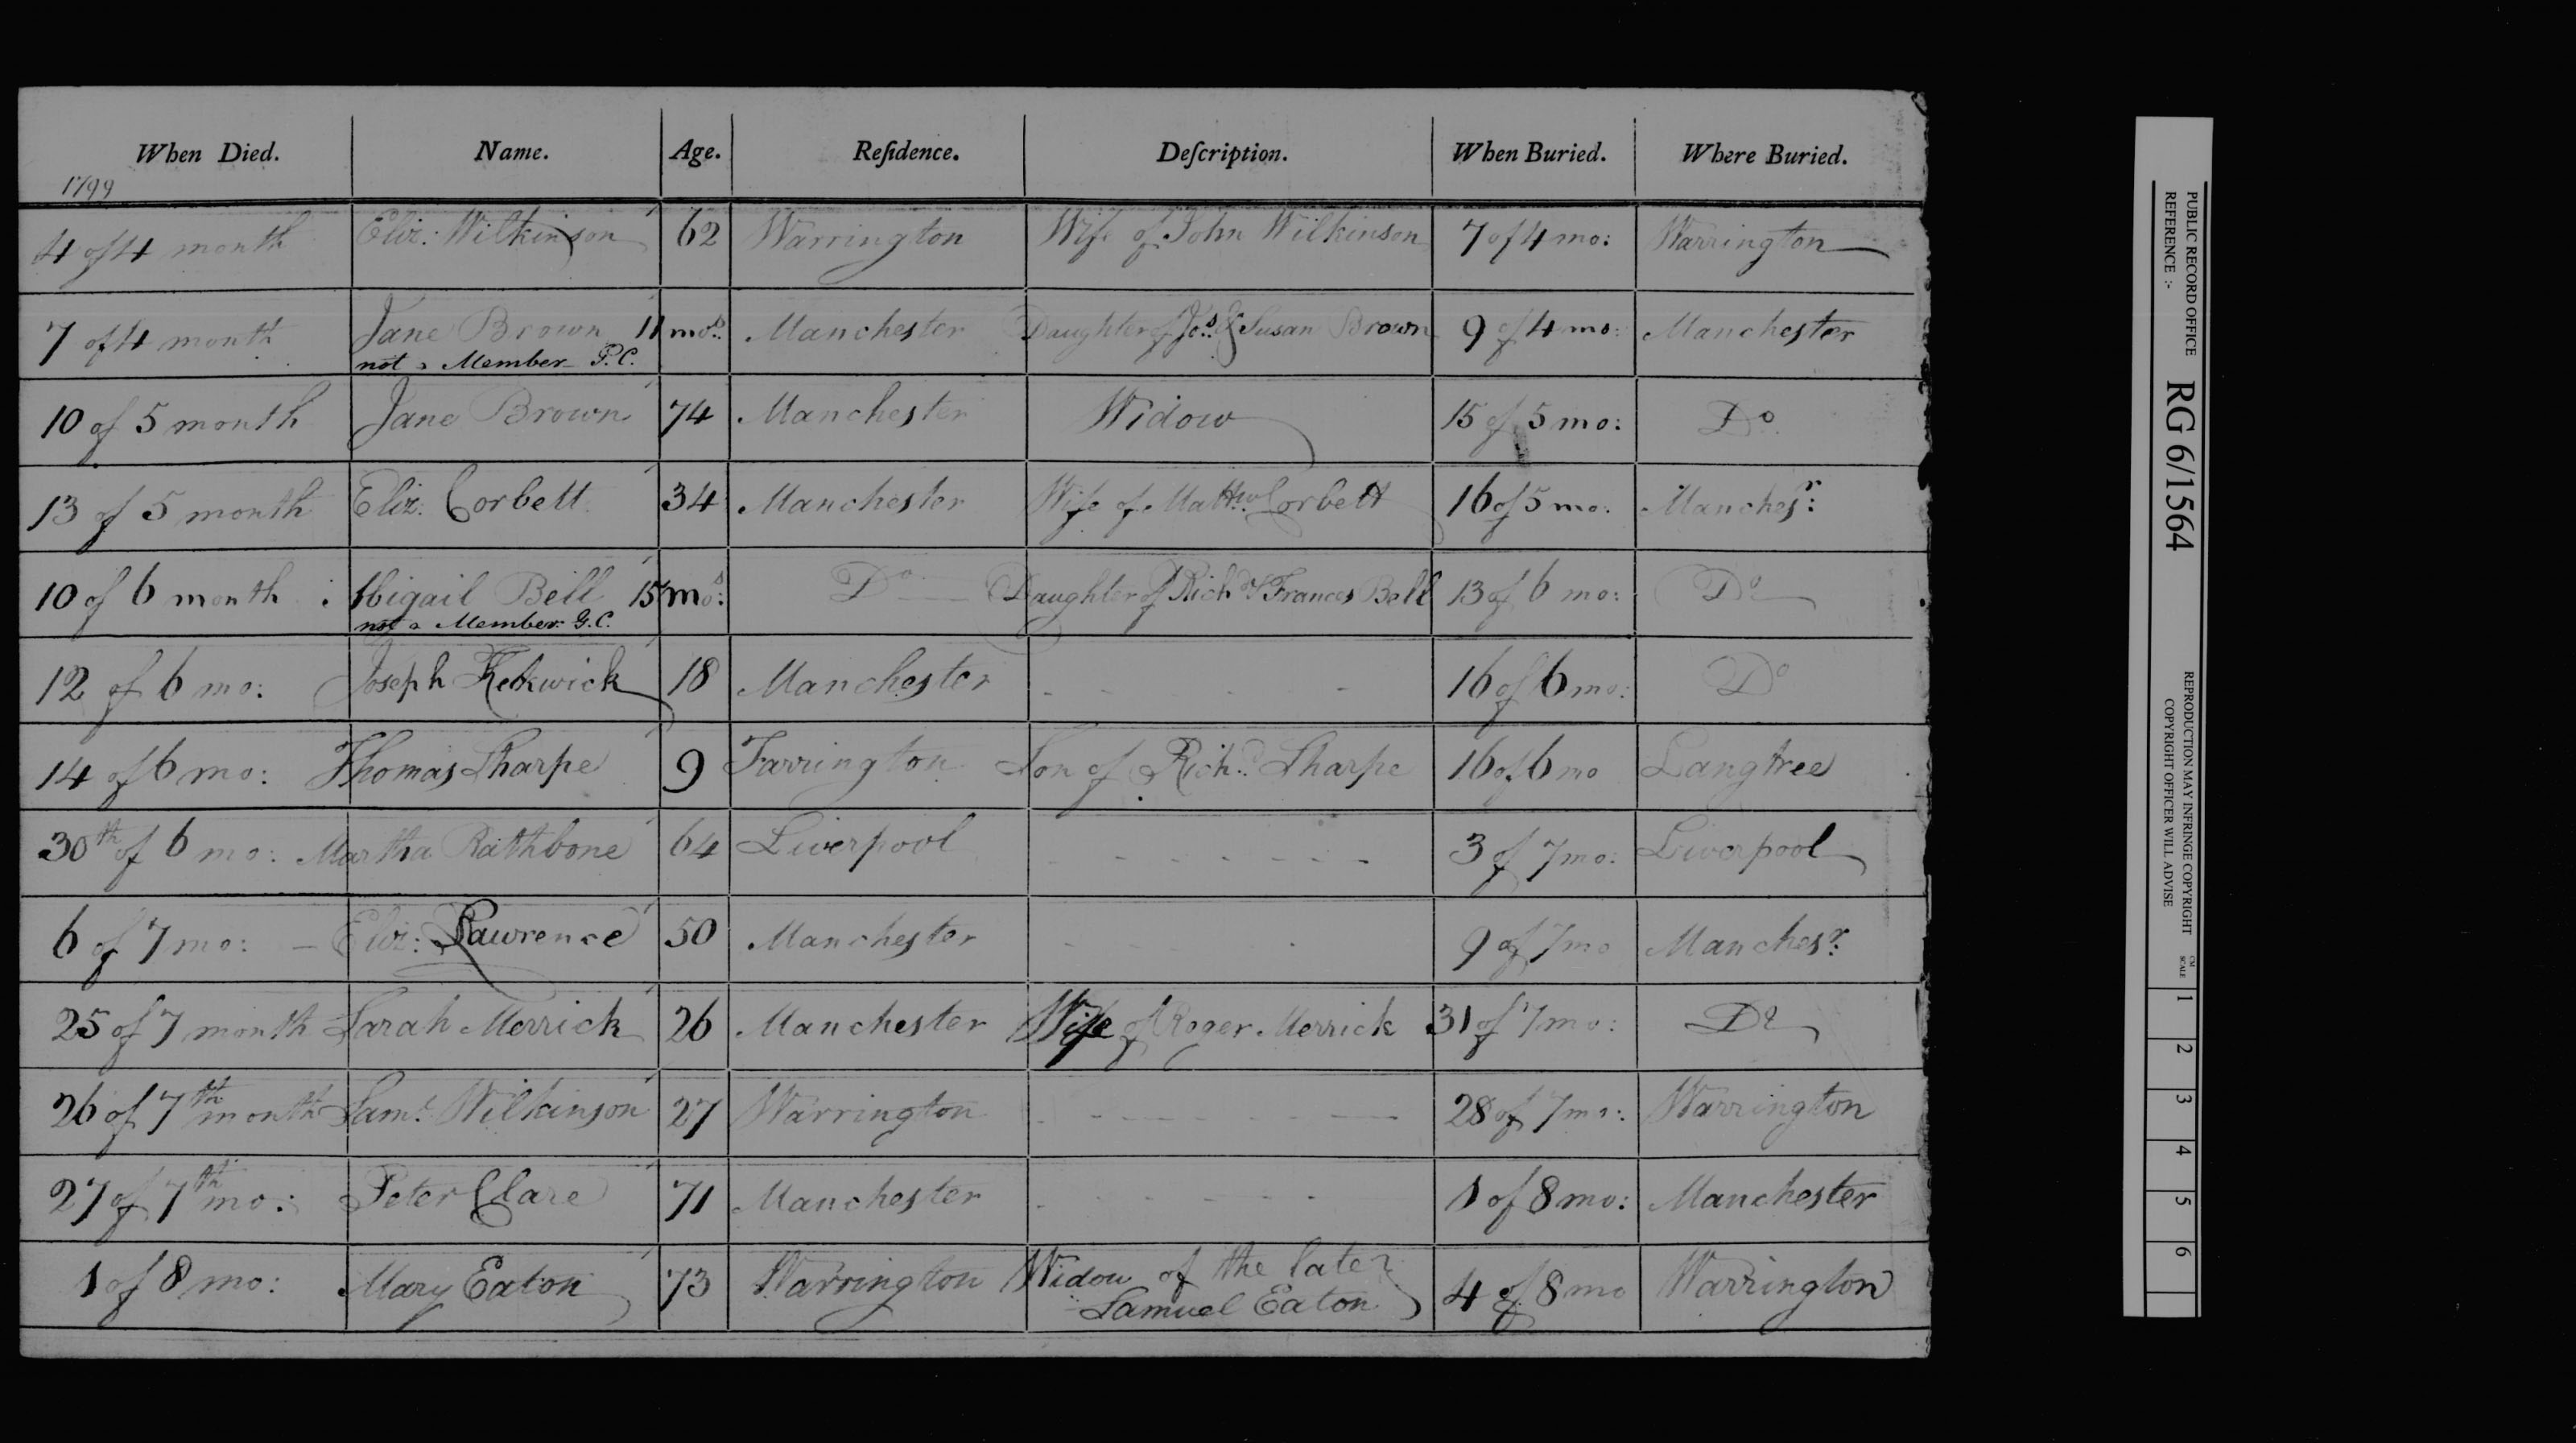 When Died. Name. Age. Reſidence. Deſcription. When Buried. Where Buried.
1799
4 of 4 month Eliz: Wilkinson 62 Warrington Wife of John Wilkinson 7 of 4 mo: Warrington
7 of 4 month Jane Brown 11 mos. Manchester Daughter of Jos. & Susan Brown 9 of 4 mo: Manchester
not a Member P.C.
10 of 5 month Jane Brown 74 Manchester Widow 15 of 5 mo: Do.
13 of 5 month Eliz: Corbett 34 Manchester Wife of Matthw. Corbett 16 of 5 mo. Manchesr:
10 of 6 month Abigail Bell 15 mos: Do Daughter of Richd & Frances Bell 13 of 6 mo: Do
not a Member G.C.
12 of 6 mo: Joseph Kekwick 18 Manchester 16 of 6 mo: Do
14 of 6 mo: Thomas Sharpe 9 Farrington Son of Richd. Sharpe 16 of 6 mo Langtree
30th of 6 mo: Martha Rathbone 64 Liverpool 3 of 7 mo: Liverpool
6 of 7 mo: Eliz: Lawrence 50 Manchester 9 of 7 mo Manchesr:
25 of 7 month Sarah Merrick 26 Manchester Wife of Roger Merrick 31 of 7 mo: Do
26 of 7th month Saml. Wilkinson 27 Warrington 28 of 7 mo: Warrington
27 of 7th mo: Peter Clare 71 Manchester 1 of 8 mo: Manchester
1 of 8 mo: Mary Eaton 73 Warrington Widow of the late 4 of 8 mo Warrington
Samuel Eaton
PUBLIC RECORD OFFICE
REFERENCE :-
RG 6/1564
REPRODUCTION MAY INFRINGE COPYRIGHT
COPYRIGHT OFFICER WILL ADVISE
CM
SCALE
1 2 3 4 5 6